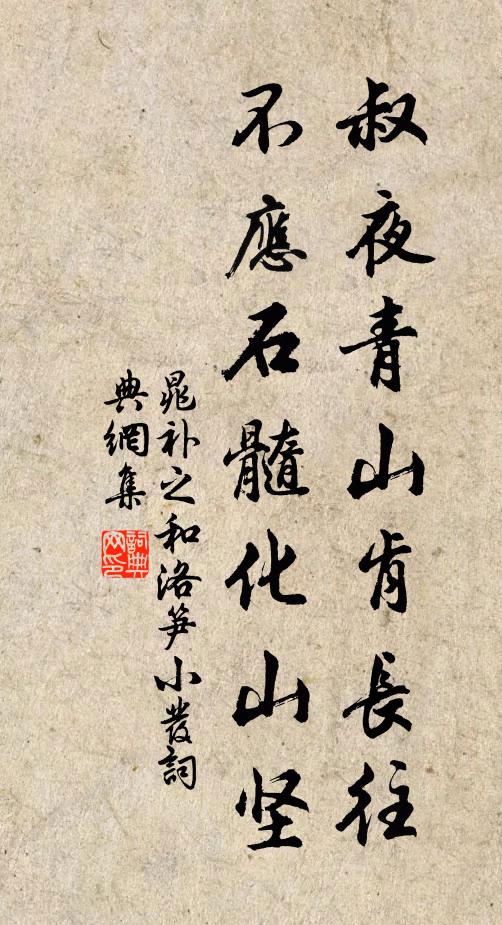 叔夜青山肯長往
不應石髓化山坚
晁补之和洛笋小發詞
典網集
詞典
网印